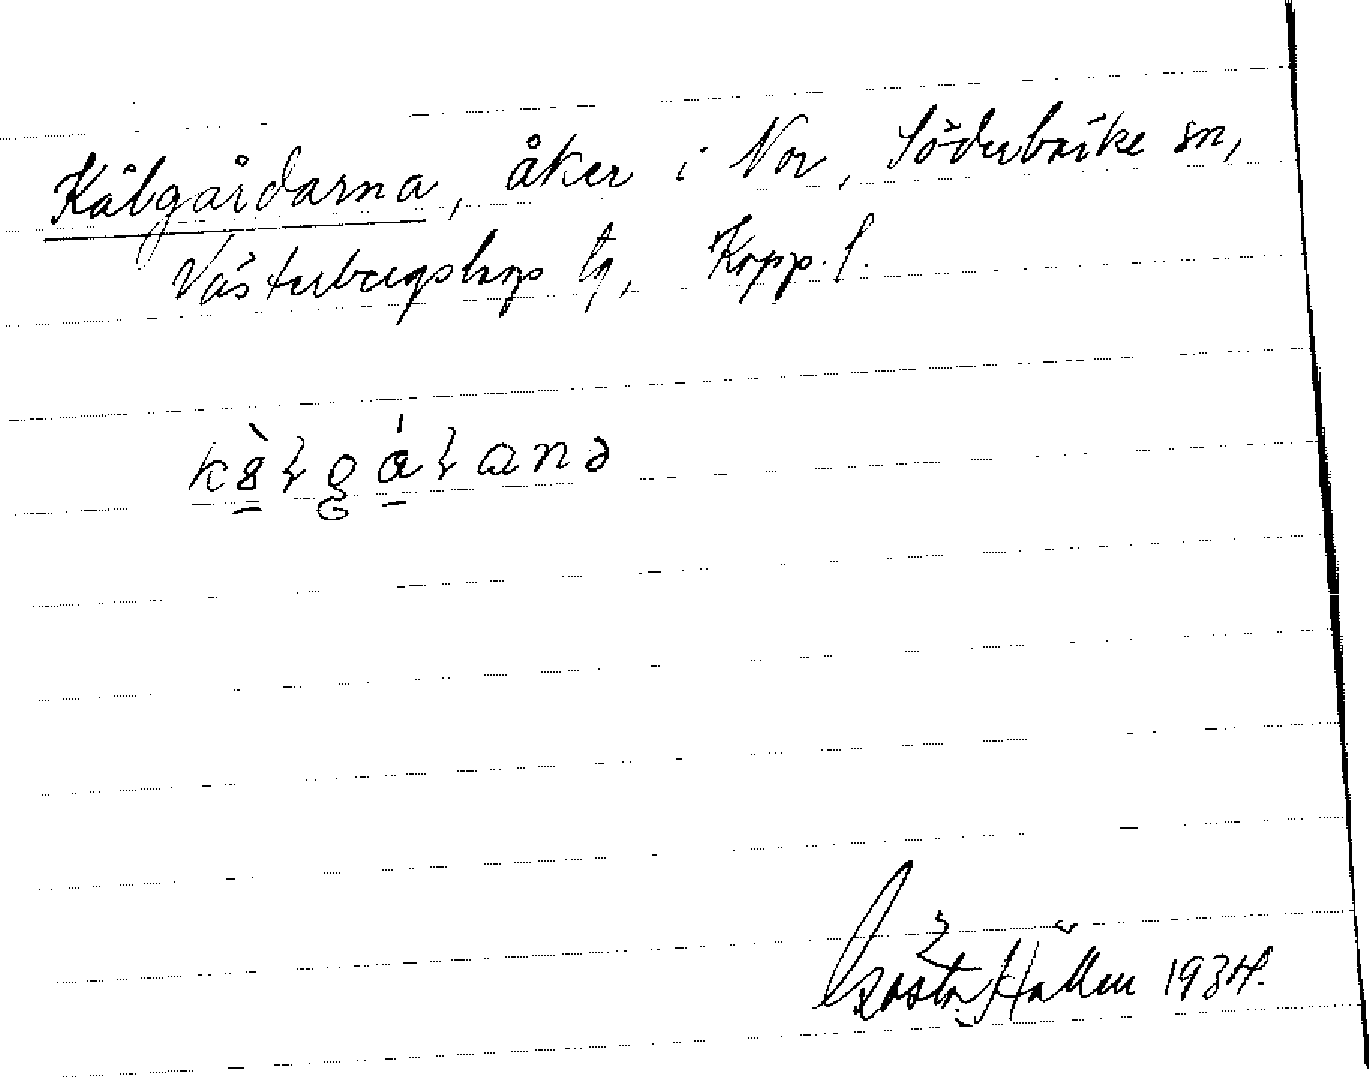 Kålgårdarna, åker i Nor, Söderbärke sn,
Västerbergslags tg, Kopp. l.
Gösta Hällen 1934.